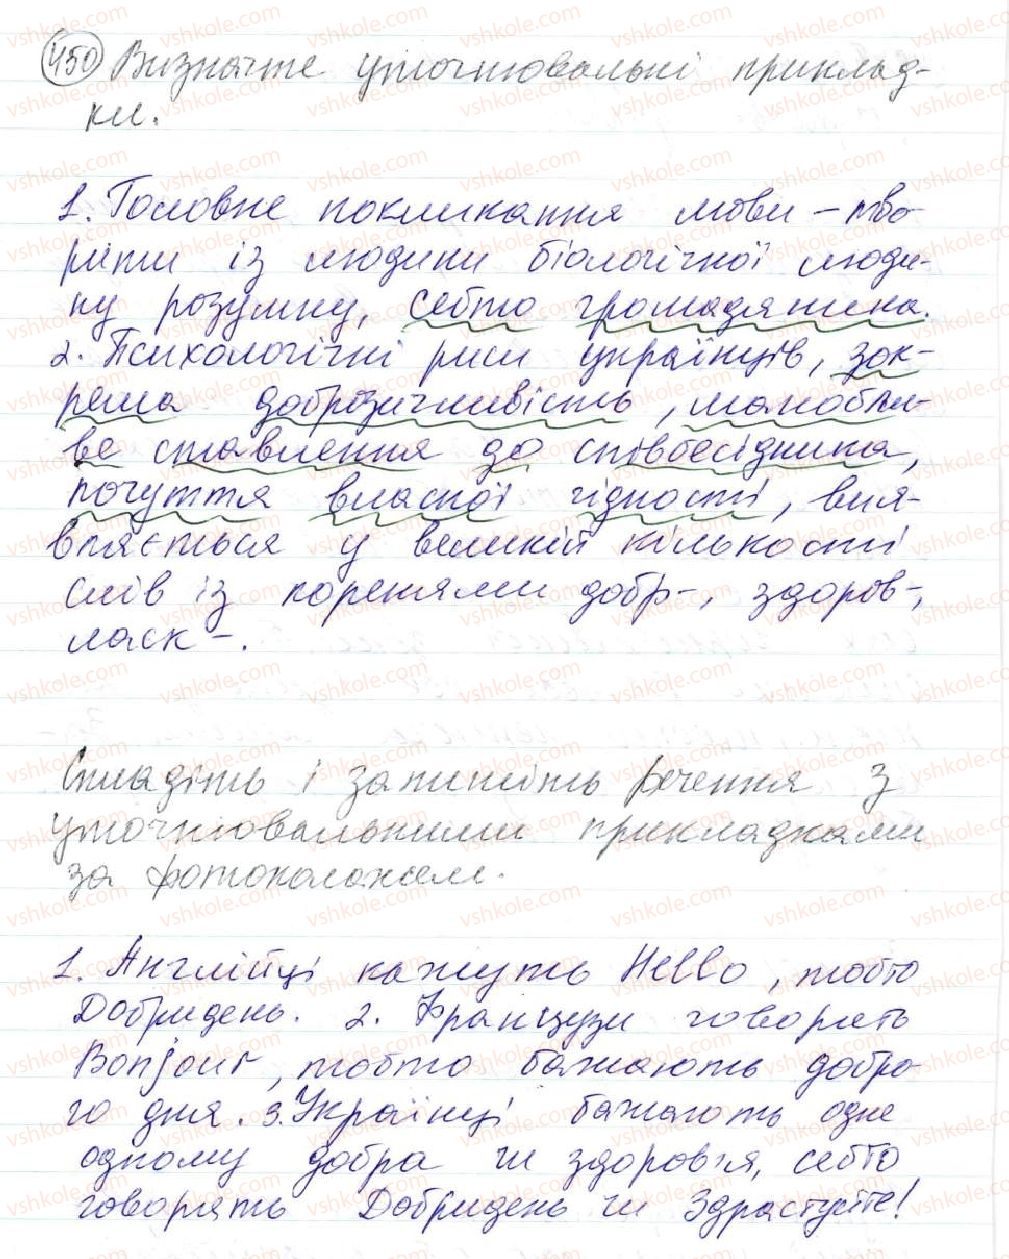 450 Визначте уточнювальні приклад-
ки.
1. Головне покликання мови – тво-
рити із людини біологічної люди-
ну розумну, себто громадянина.
2. Психологічні риси українців, зок-
рема доброзичливість, шанобли-
ве ставлення до співбесідника,
почуття власної гідності, вия-
вляється у великій кількості
слів із коренями добр-, здоров-,
ласк-.
Складіть і запишіть речення з
уточнювальними прикладками
за фотоколажем.
1. Англійці кажуть Hello, тобто
Добридень. 2. Французи говорять
Bonjour, тобто бажають добро-
го дня. 3. Українці бажають одне
одному добра чи здоров'я, себто
говорять Добридень чи Здраствуйте!